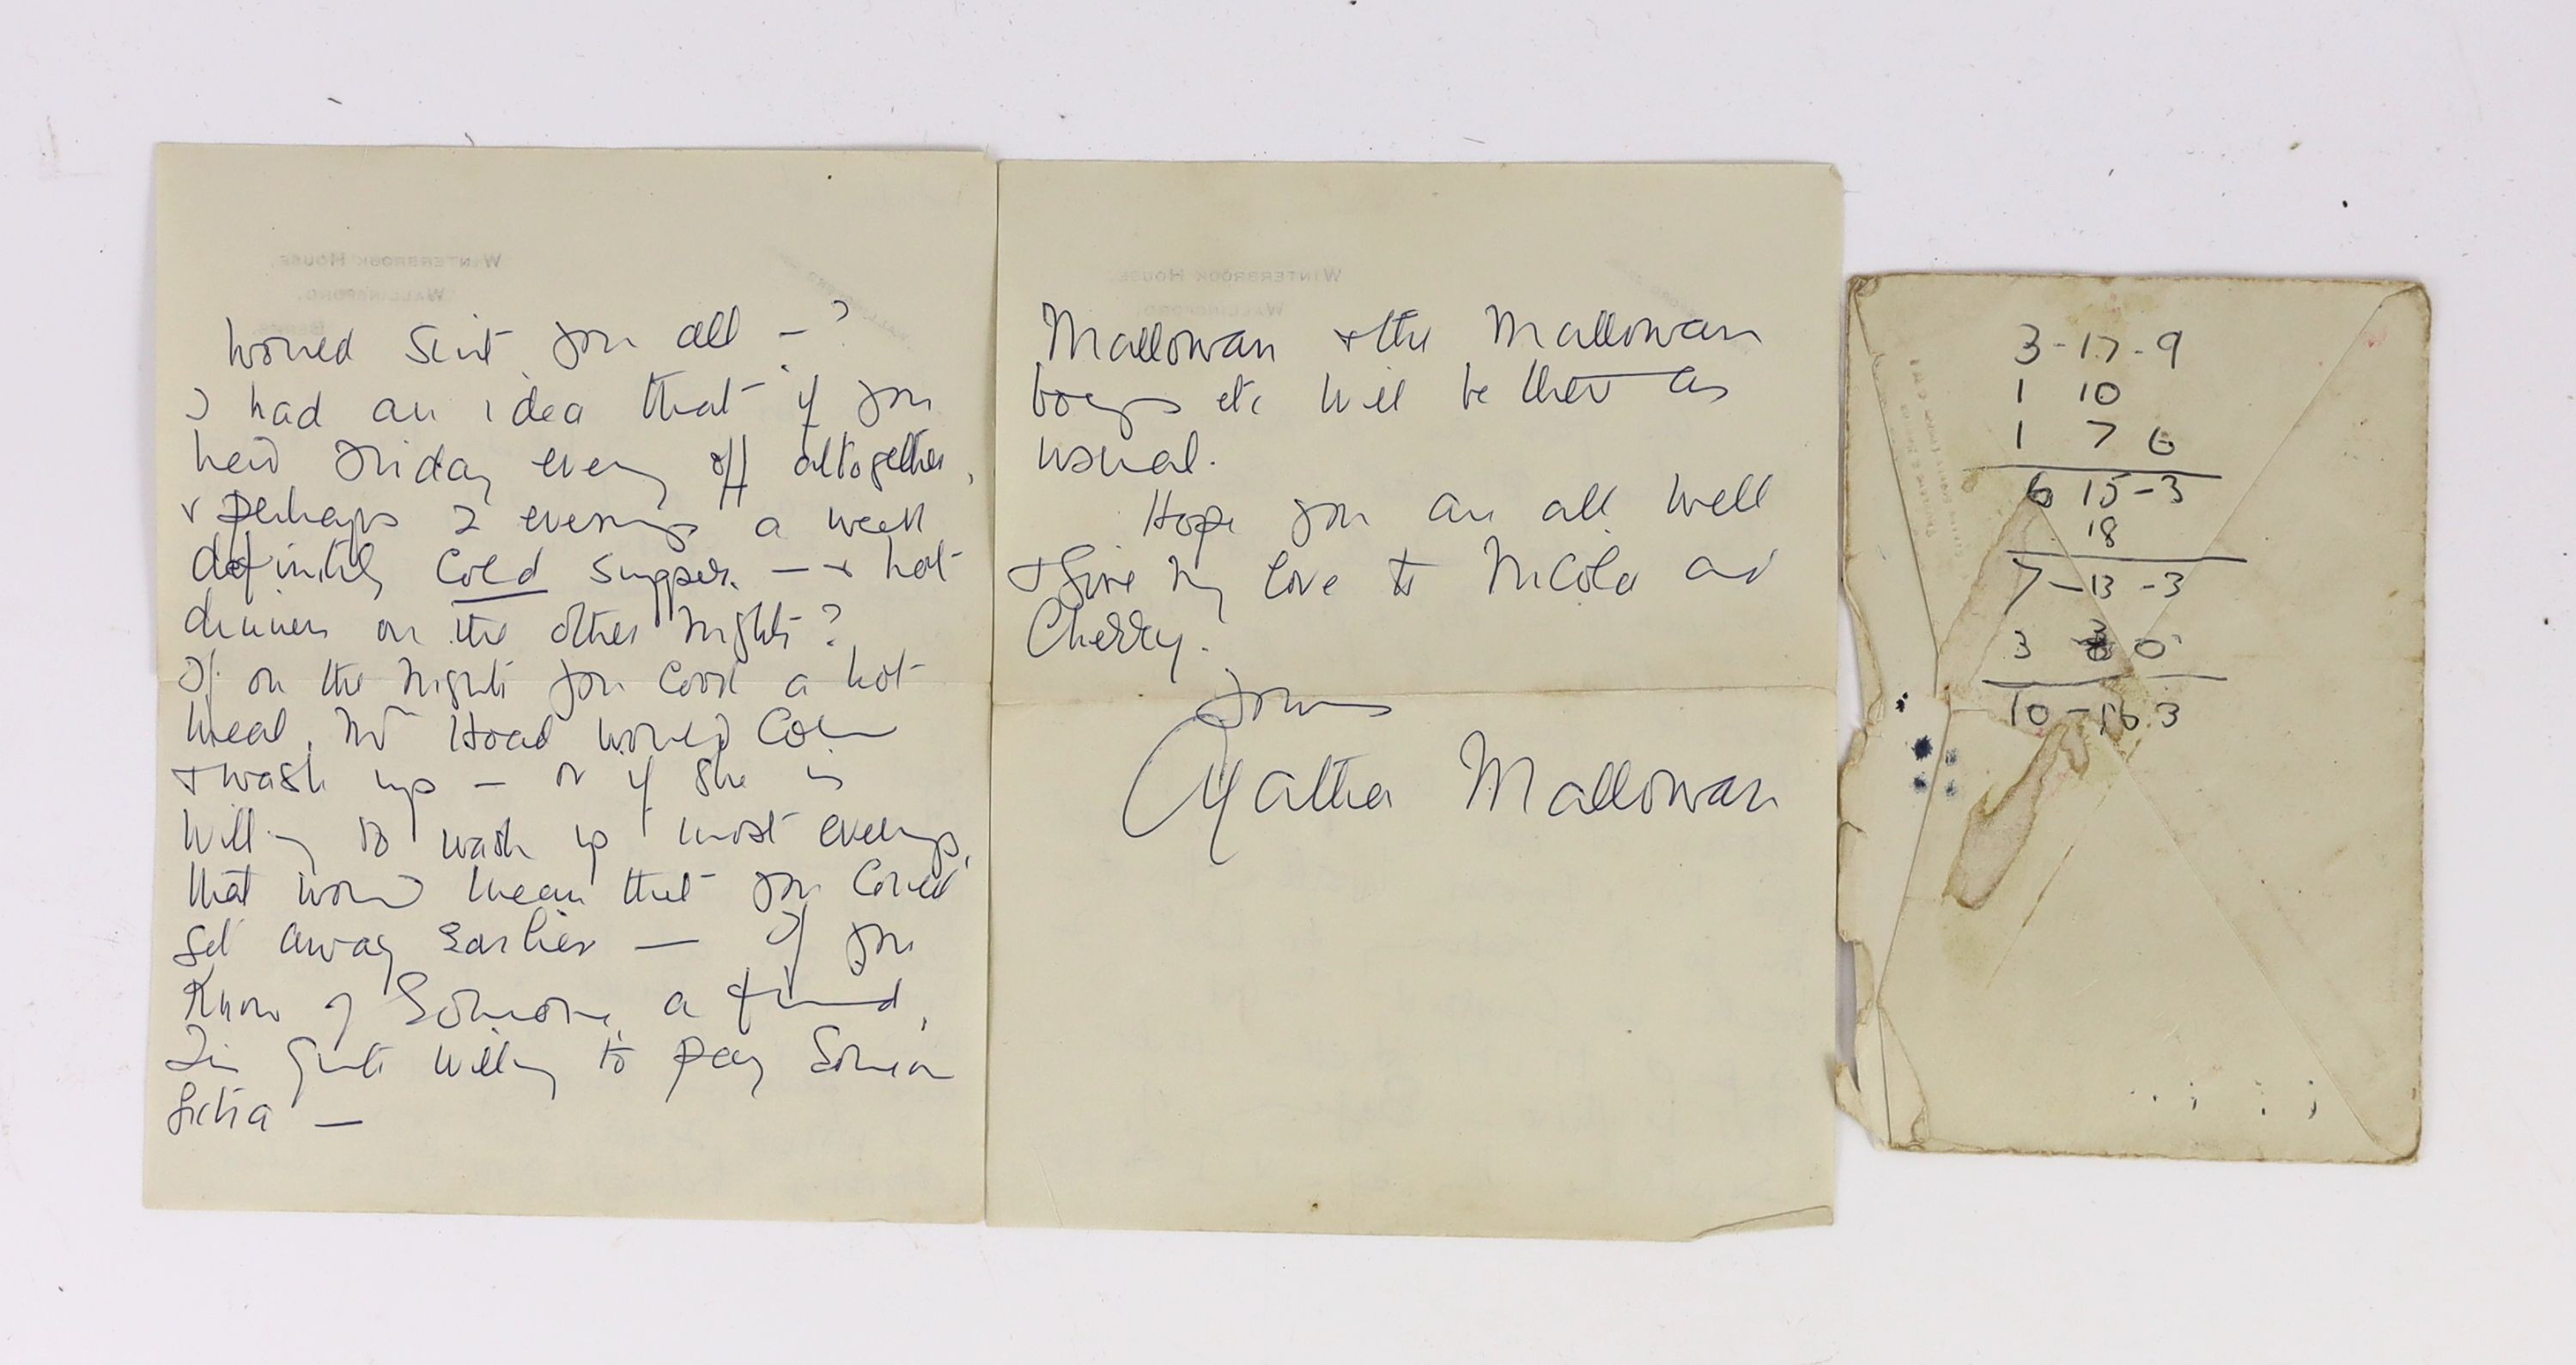 would suit you all - ?
I had an idea that if you
had Friday evening off altogether,
& perhaps 2 evenings a week
definitely Cold supper. - & hot
dinners on the other nights?
If on the nights you cook a hot
meal, Mrs Hoad would come
& wash up - or if she is
willing to wash up most evenings,
that would mean that you could
get away earlier - If you
know of someone, a friend,
I'm quite willing to pay someone
extra -
WINTERBROOK HOUSE,
WALLINGFORD,
BERKS.
Mallowan & the Mallowan
boys etc will be there as
usual.
Hope you are all well
& give my love to Nicola and
Cherry.
Yours
Agatha Mallowan
WINTERBROOK HOUSE,
WALLINGFORD,
3 - 17 - 9
1 10
1 7 6
6 15 - 3
18
7 - 13 - 3
3 3 0
10 - 16 3